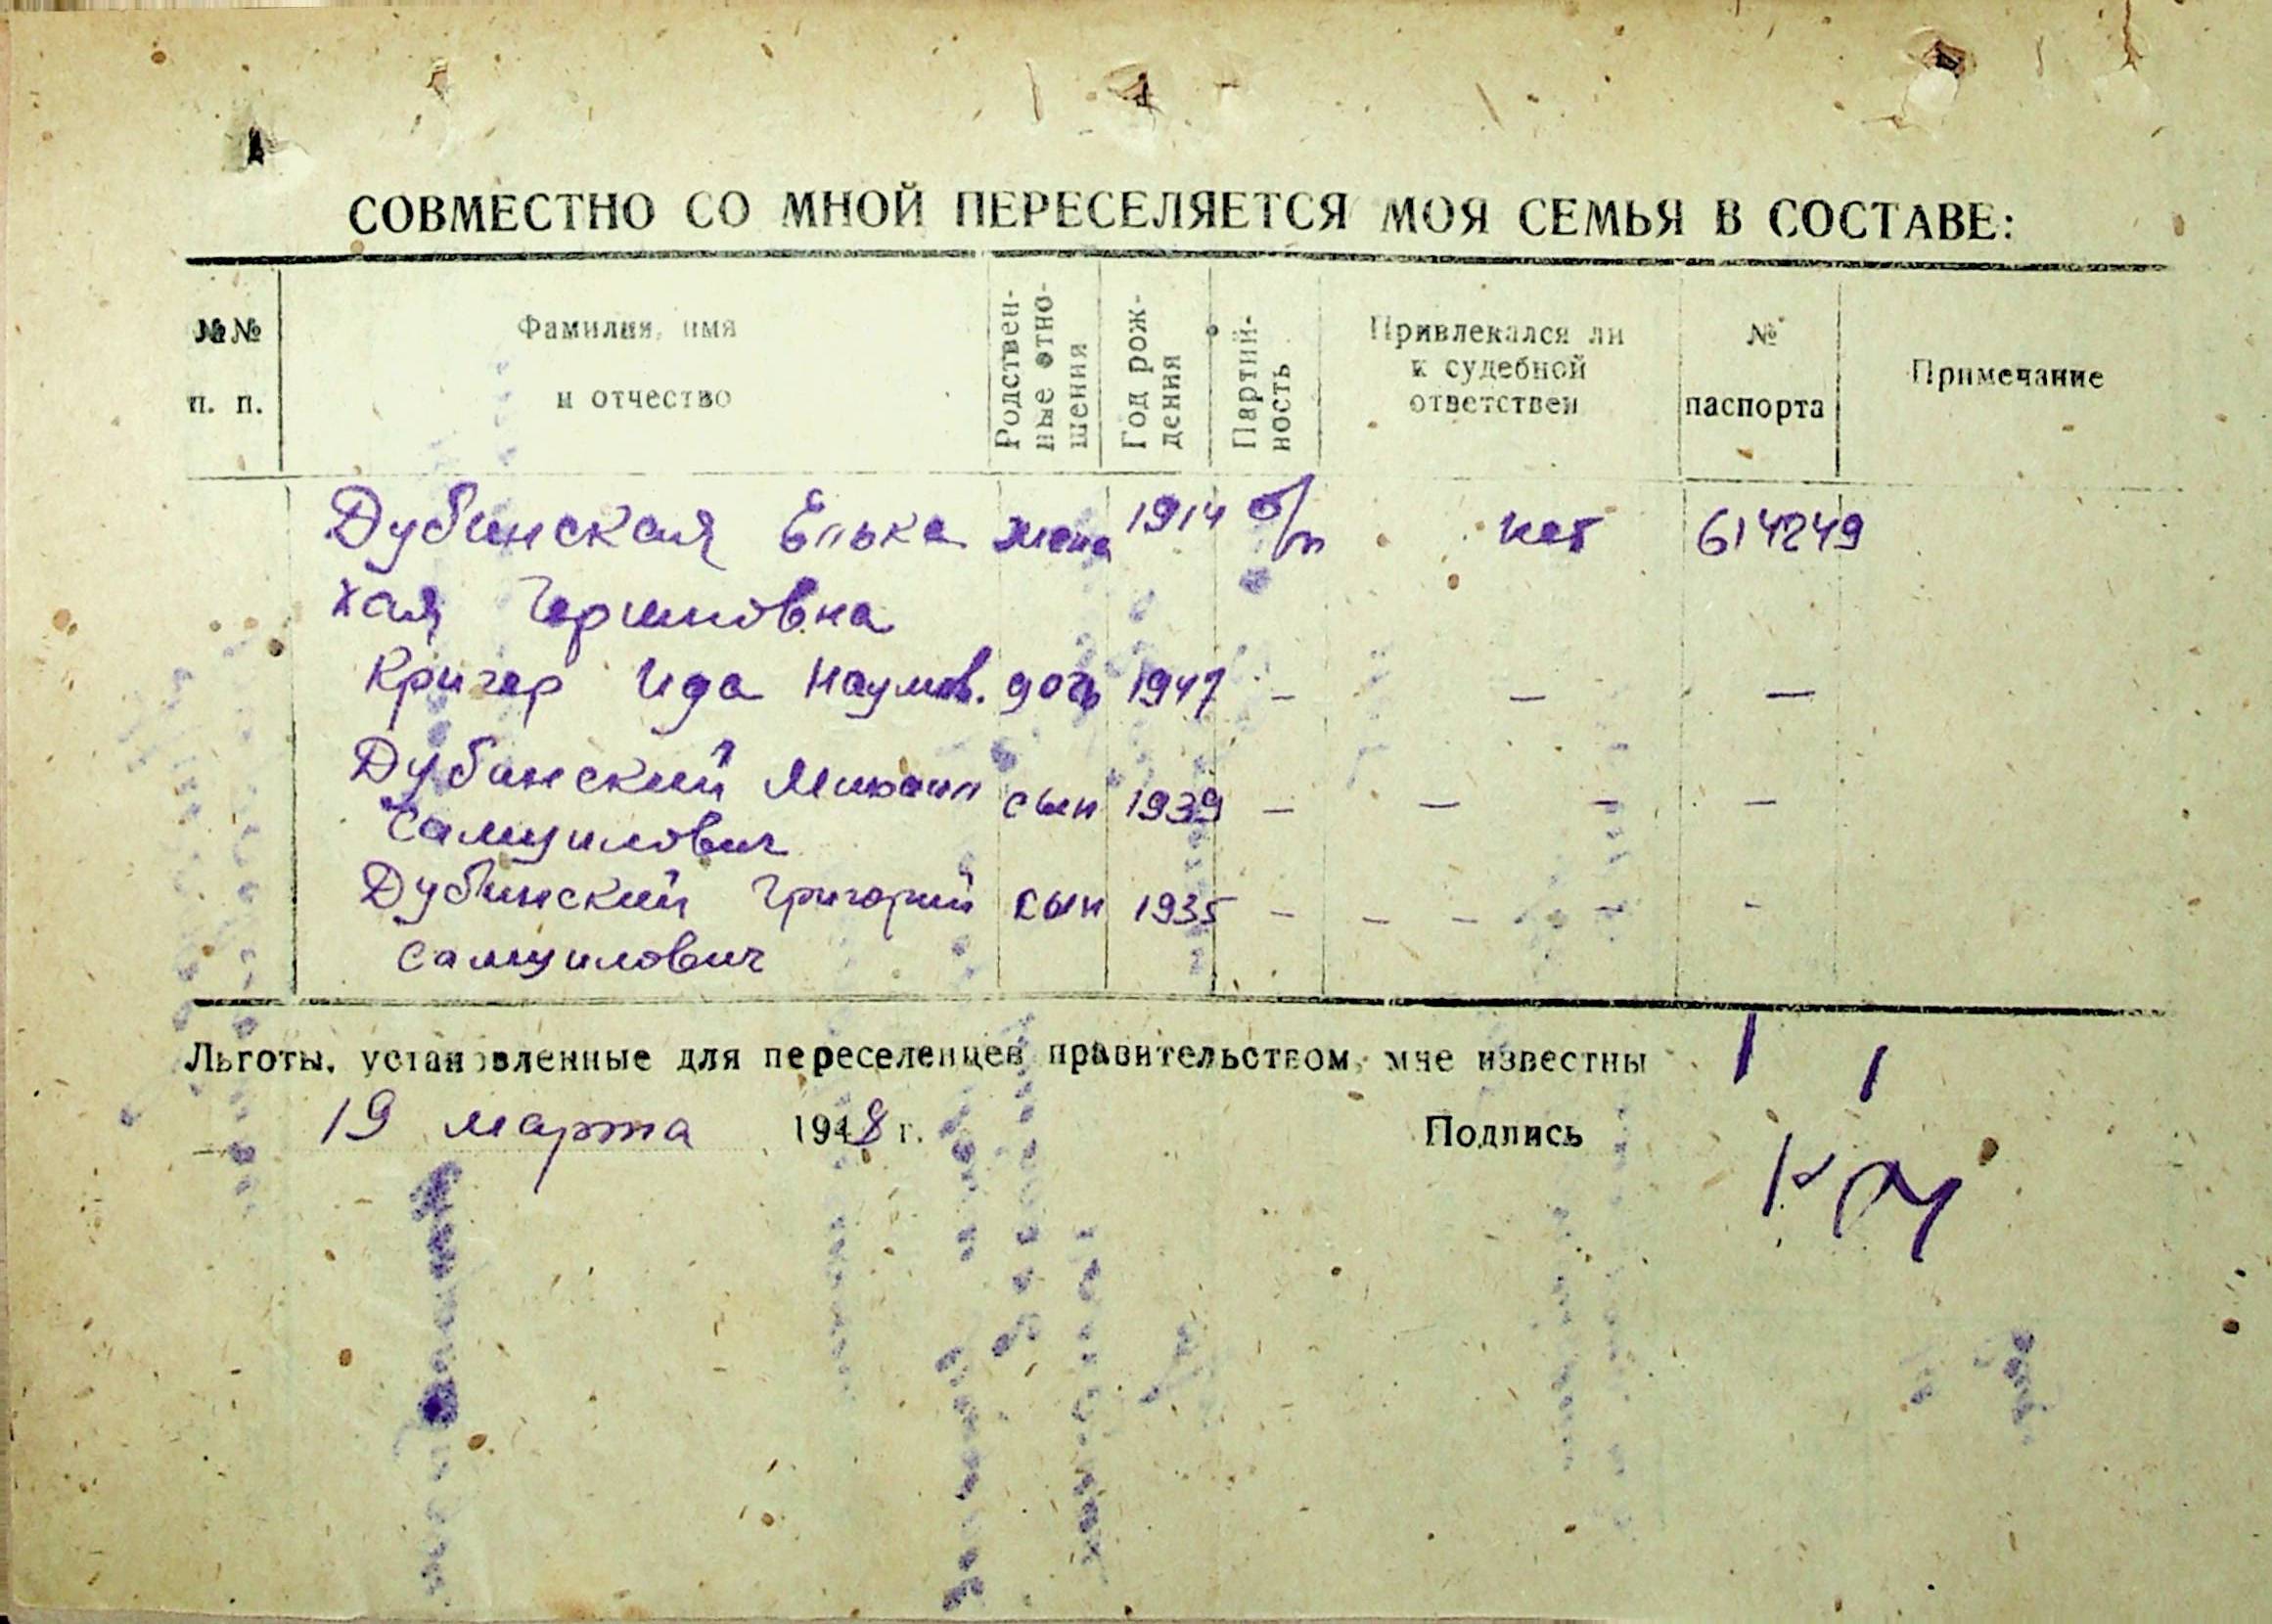 СОВМЕСТНО СО МНОЙ ПЕРЕСЕЛЯЕТСЯ МОЯ СЕМЬЯ В СОСТАВЕ:
№№ п. п.
Фамилия, имя и отчество
Родствен-ные отно-шения
Год рож-дения
Партий-ность
Привлекался ли к судебной ответствен
№ паспорта
Примечание
Дубинская Елька жена 1914 б/п нет 614249
Хая Гершковна
Кригер Ида Наумов. дочь 1947 — — —
Дубинский Михаил сын 1939 — — — —
Самуилович
Дубинский Григорий сын 1935 – – – – –
Самуилович
Льготы, установленные для переселенцев правительством, мне известны
19 марта 1948 г. Подпись